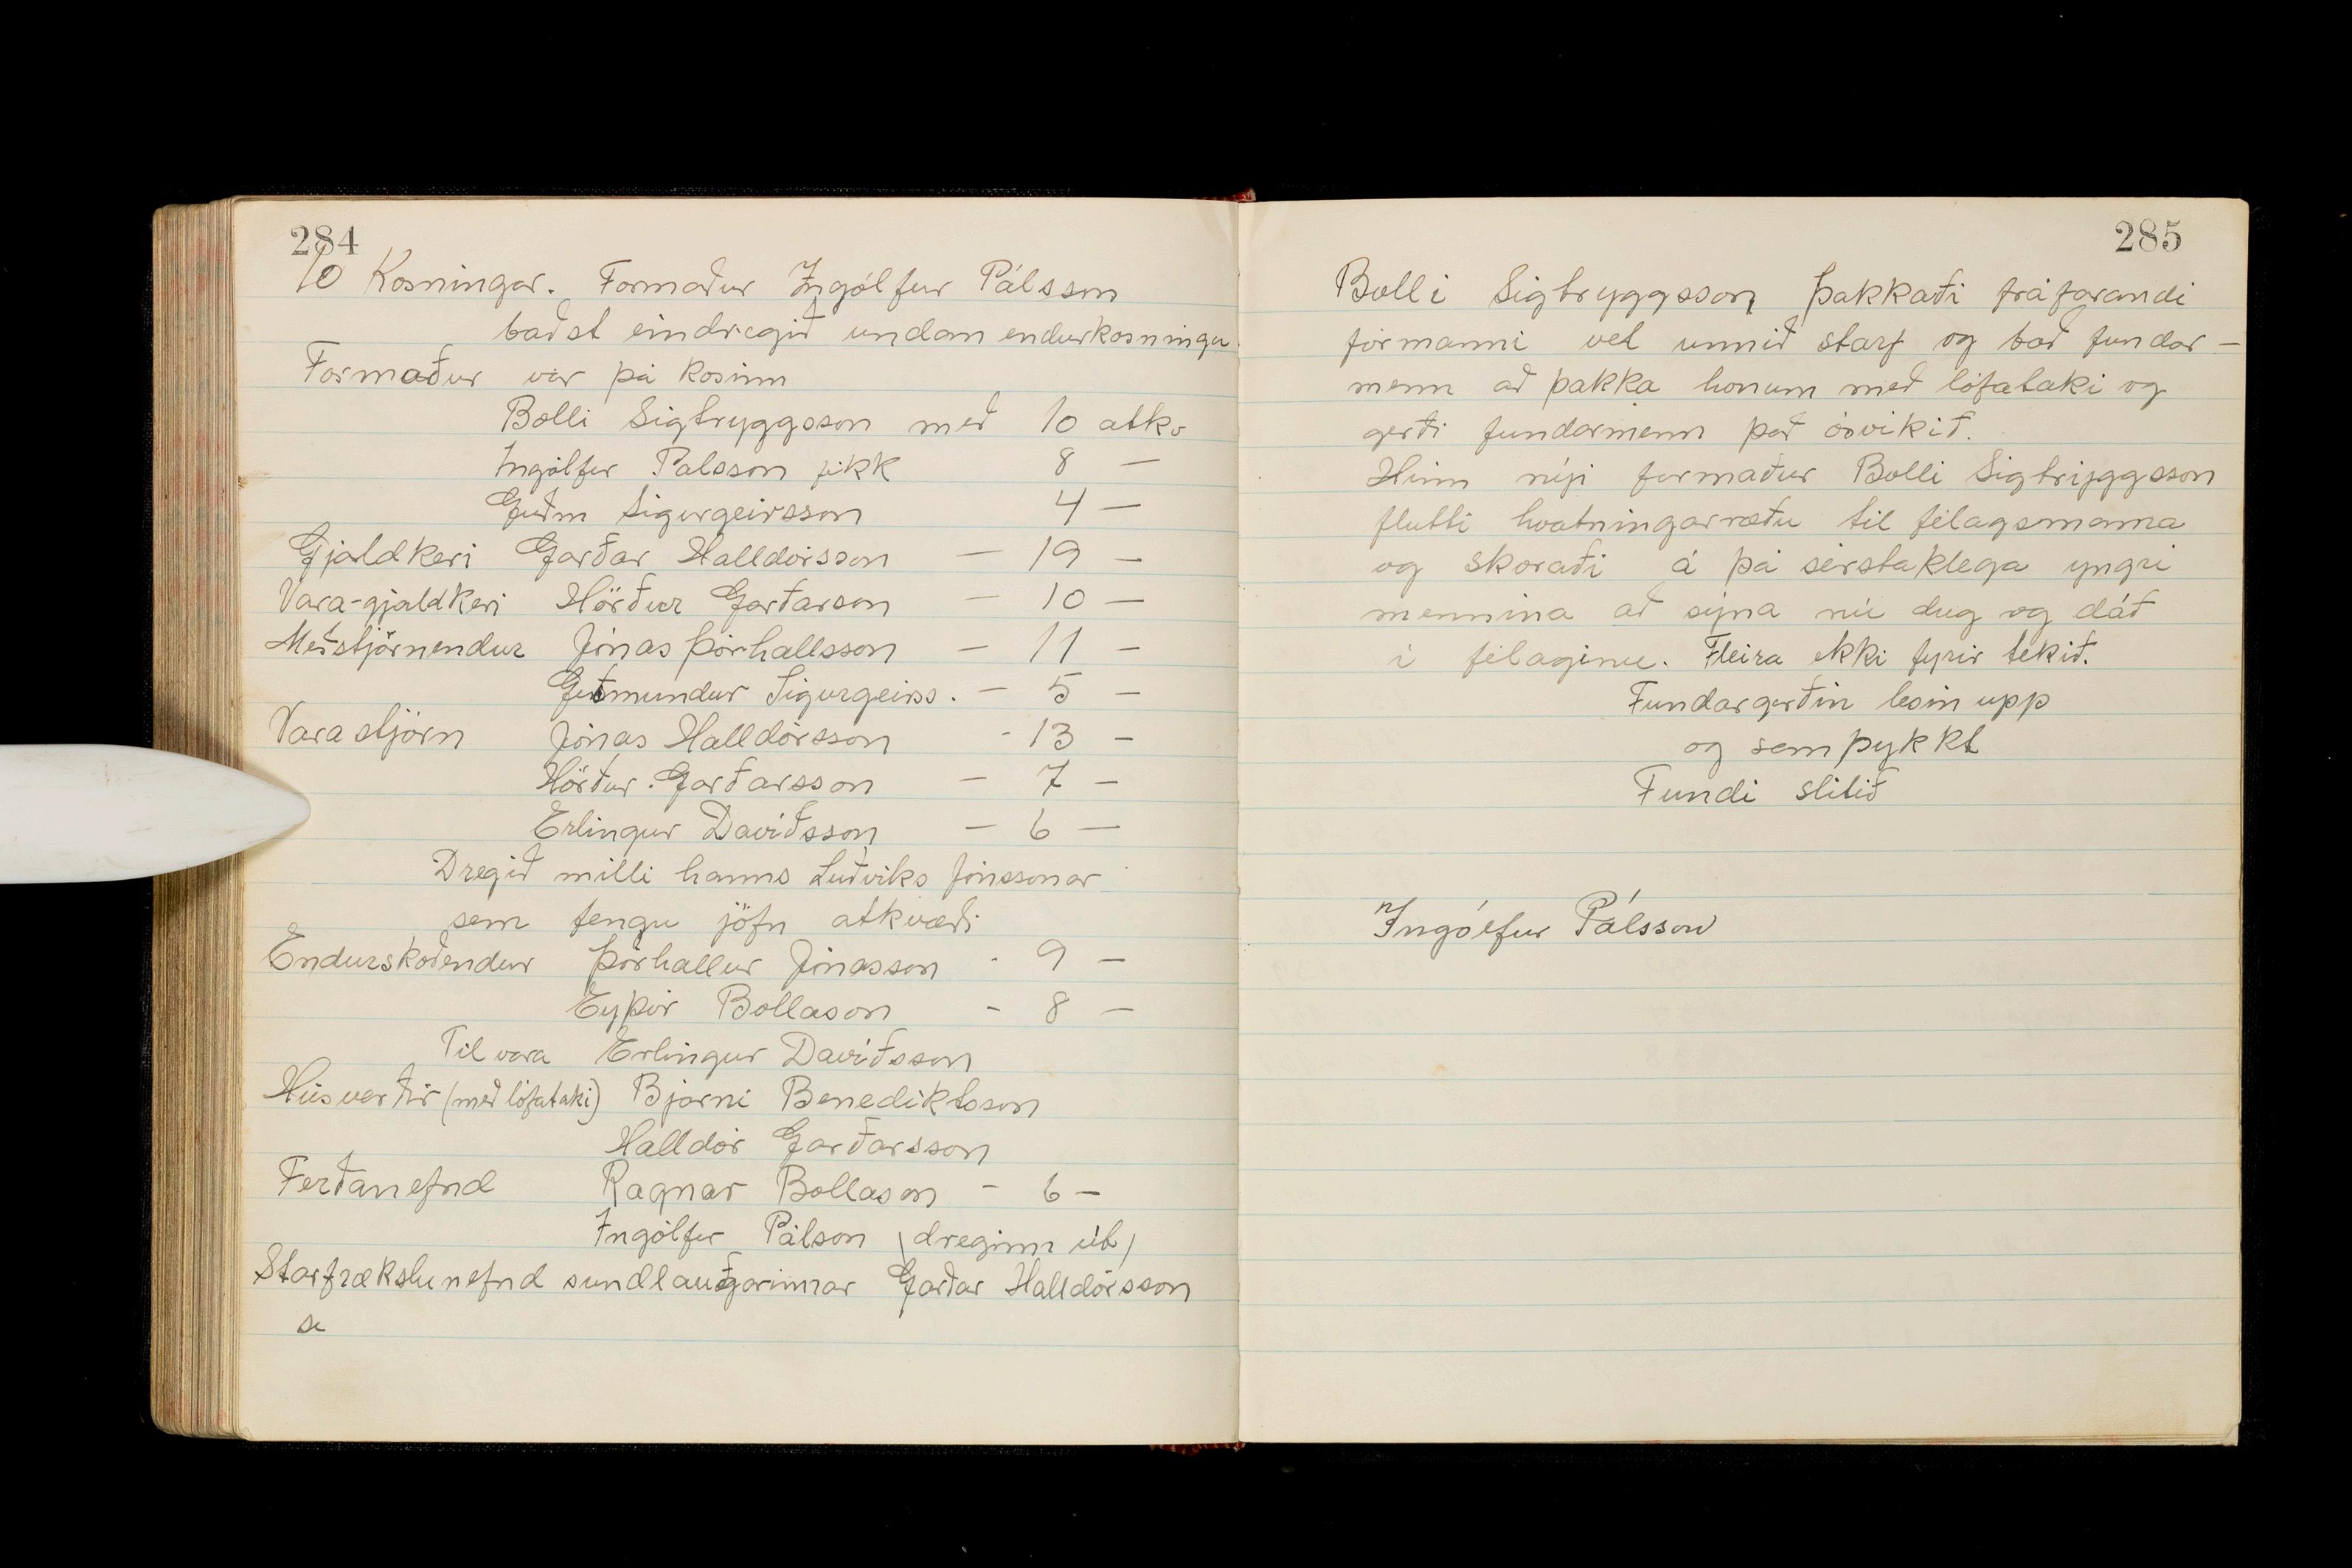 284
10 Kosningar. Formaður Ingólfur Pálsson
baðst eindregið undan endurkosningu.
Formaður var þá kosinn
Bolli Sigtryggsson með 10 atkv
Ingólfur Palsson fékk 8 —
Guðm Sigurgeirsson 4 —
Gjaldkeri Garðar Halldórsson — 19 —
Vara-gjaldkeri Hörður Garðarson — 10 —
Meðstjórnendur Jónas Þórhallsson — 11 —
Guðmundur Sigurgeirss. — 5 —
Varastjórn Jónas Halldórsson - 13 —
Hörður Garðarsson — 7 —
Erlingur Davíðsson — 6 —
Dregið milli hanns Luðviks Jónssonar
sem fengu jöfn atkvæði
Endurskoðendur Þórhallur Jónasson - 9 —
Eyþór Bollason - 8 —
Til vara Erlingur Davíðsson
Húsverðir (með lófataki) Bjarni Benediktsson
Halldór Garðarsson
Ferðanefnd Ragnar Bollason - 6 —
Ingólfur Pálson (dreginn út)
Starfrækslunefnd sundlaugarinnar Garðar Halldórsson
se
285
Bolli Sigtryggsson þakkaði fráfarandi
formanni vel unnið starf og bað fundar –
menn að þakka honum með lófataki og
gerði fundarmenn það ósvikið.
Hinn nýji formaður Bolli Sigtryggsson
flutti hvatningarræðu til félagsmanna
og skoraði á þá sérstaklega yngri
mennina að sýna nú dug og dáð
í félaginu. Fleira ekki fyrir tekið.
Fundargerðin lesin upp
og samþykkt
Fundi slitið
Ingólfur Pálsson